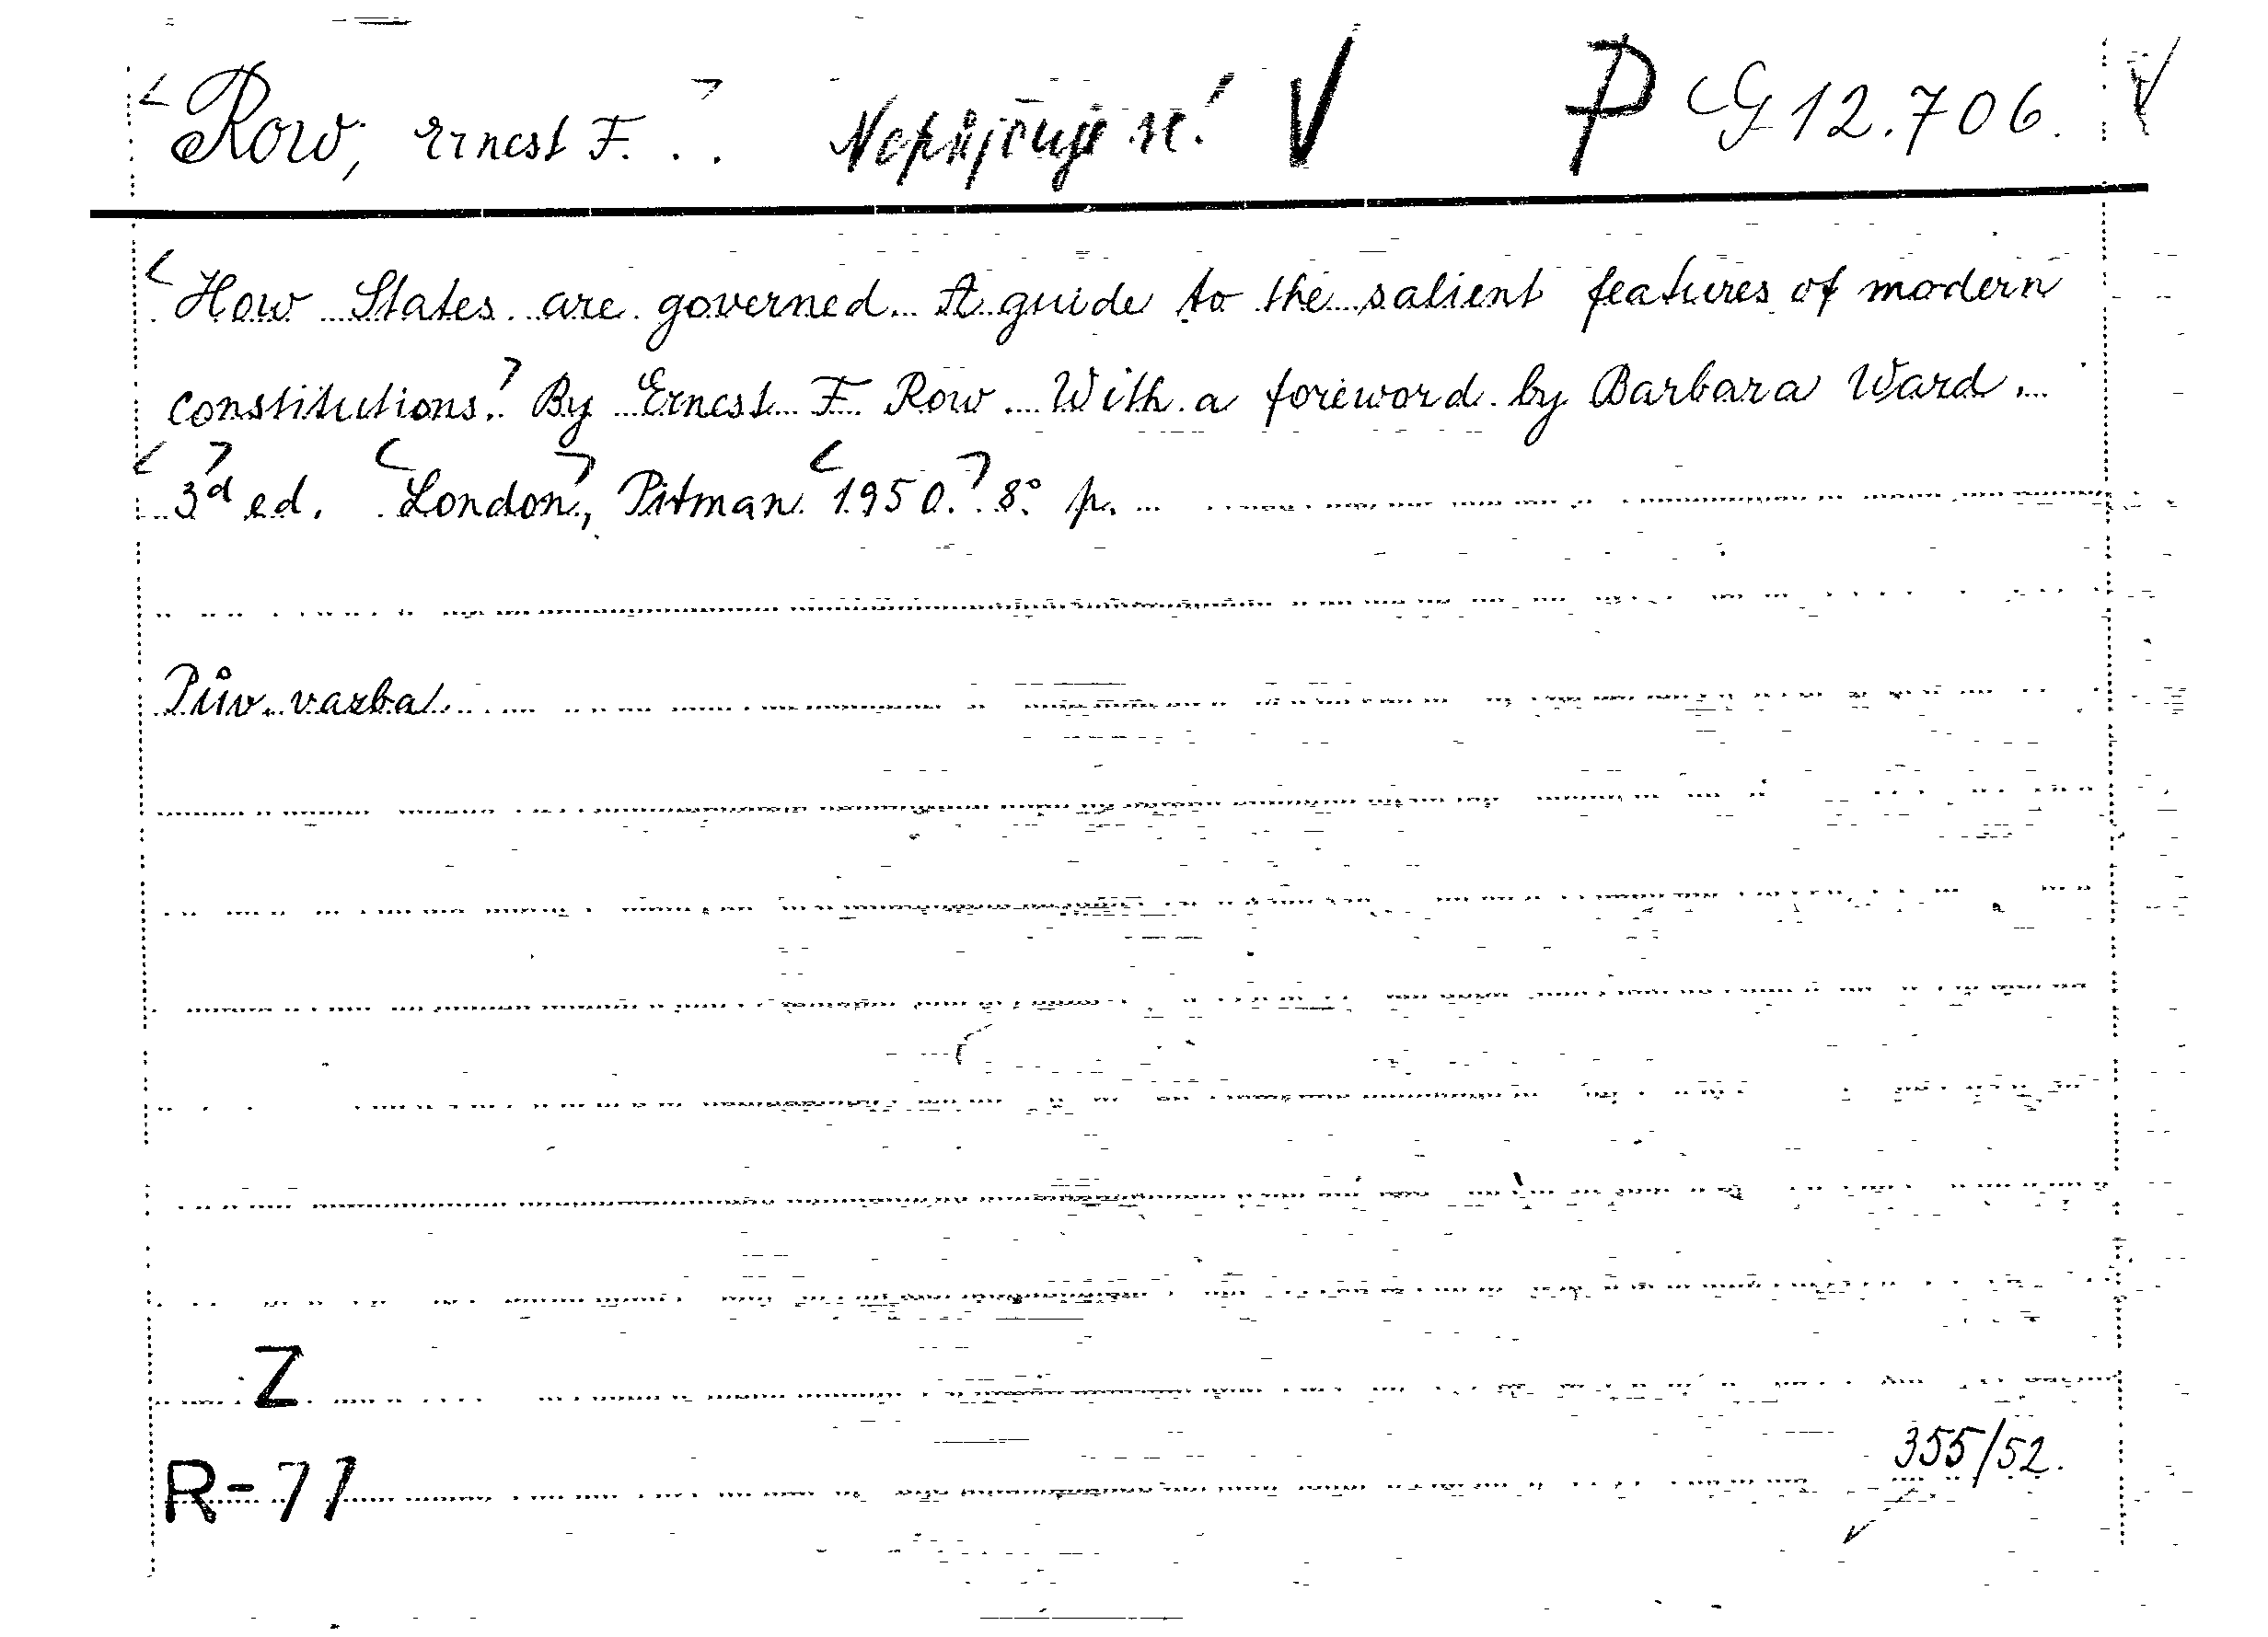 Row, Ernest F. . . Nepůjčuje se! V P G 12.706. V
How States are governed. A guide to the salient features of modern
constitutions. By Ernest F. Row. With a foreword by Barbara Ward.
3d ed. London, Pitman 1950. 8° p.
Pův. vazba.
Z
355/52.
R-77